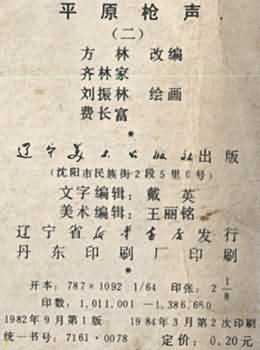 平原枪声
(二)
方林 改编
齐林家
刘振林 绘画
费长富
*
辽宁美术出版社出版
(沈阳市民族街2段5里6号)
文字编辑:戴英
美术编辑:王丽铭
辽宁省新华书店发行
丹东印刷厂印刷
*
开本:787×1092 1/64 印张:2 1/8
印数:1,011,001—1,386,650
1982年9月第1版 1984年3月第2次印刷
统一书号:7161·0078 定价:0.20元